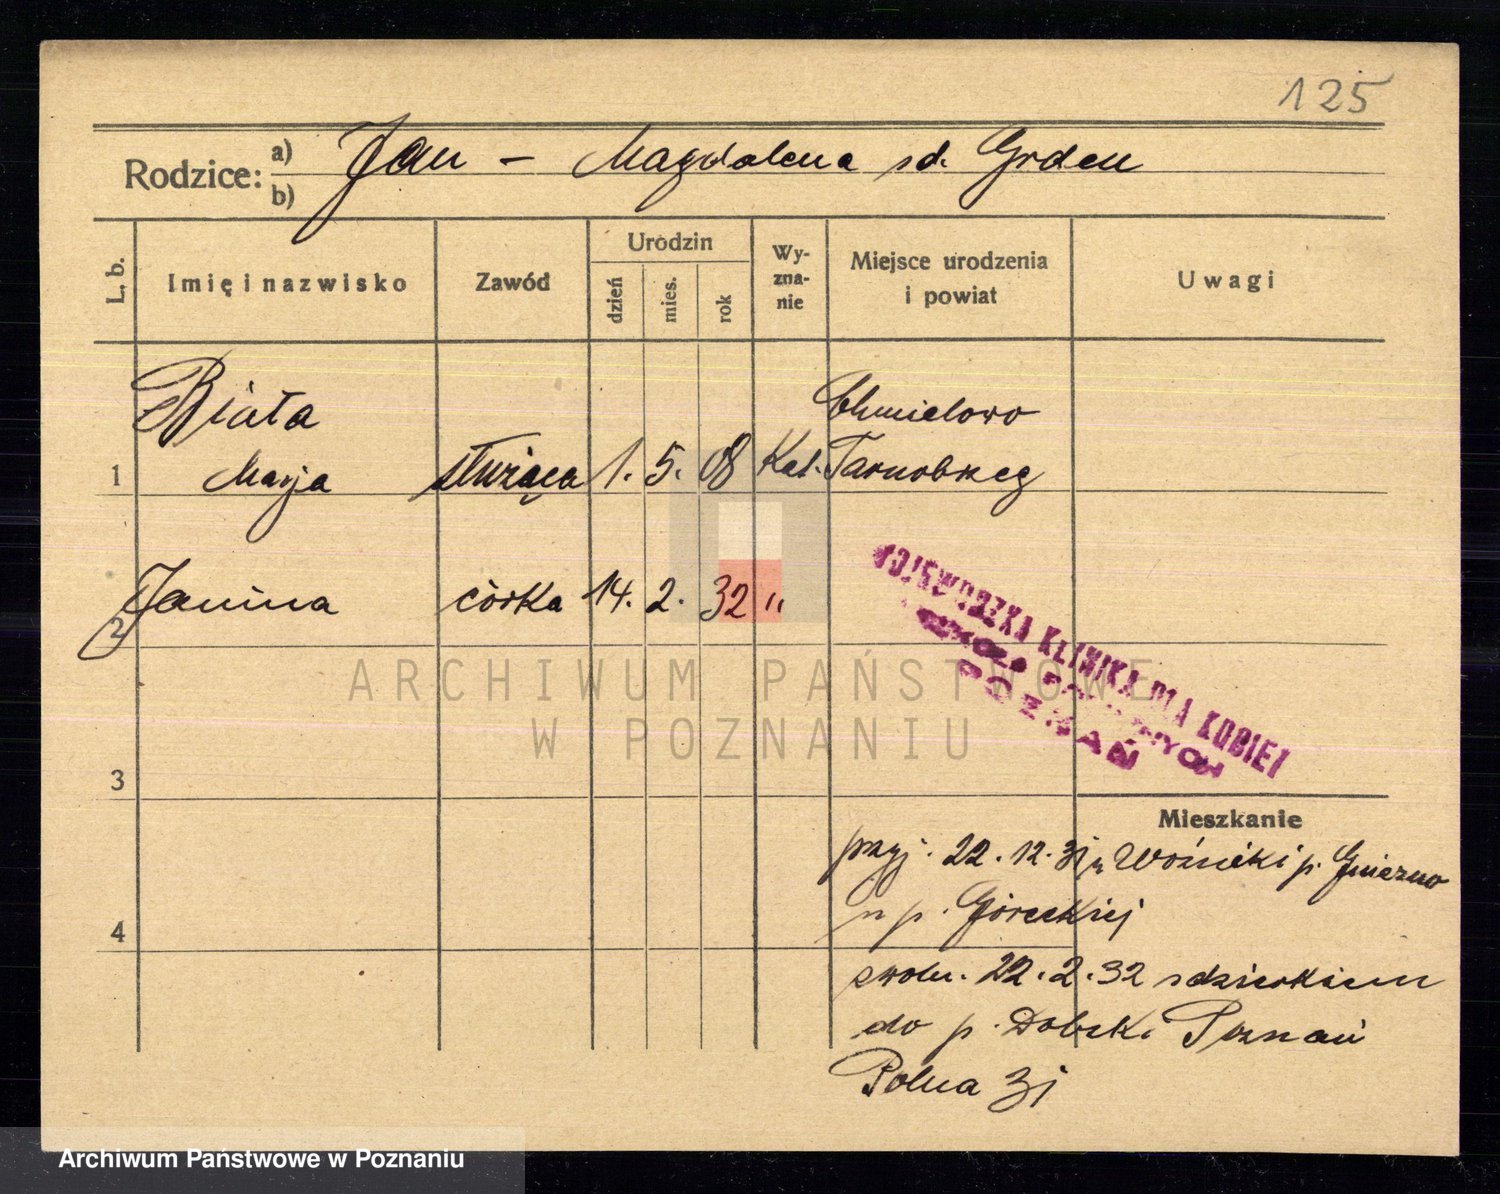 125
Rodzice: a) b) Jan - Magdalena sd. Grden
L. b. Imię i nazwisko Zawód Urodzin dzień mies. rok Wyznanie Miejsce urodzenia i powiat Uwagi
Biała Chmielowo
1 Marja służąca 1. 5. 08 Kat. Tarnobrzeg
2 Janina córka 14. 2. 32 "
WOJEWÓDZKA KLINIKA DLA KOBIET
POZNAŃ
ARCHIWUM PAŃSTWOWE
W POZNANIU
3
Mieszkanie
przyj. 22.12.31 Woźniki p. Gniezno
4 p. Góreckiej
zwoln. 22.2.32 z dzieckiem
do p. Dobski Poznań
Polna 31
Archiwum Państwowe w Poznaniu